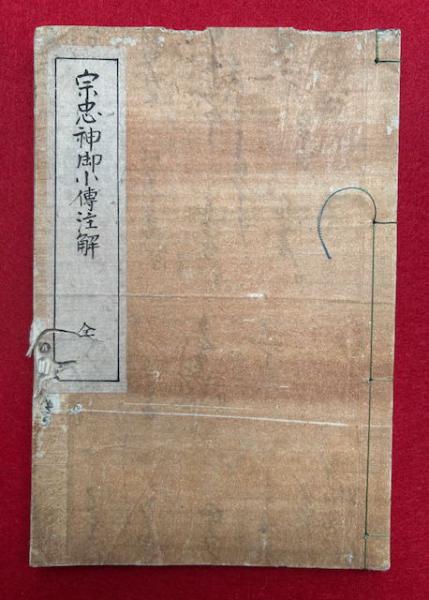 宗忠神御小傳注解
全